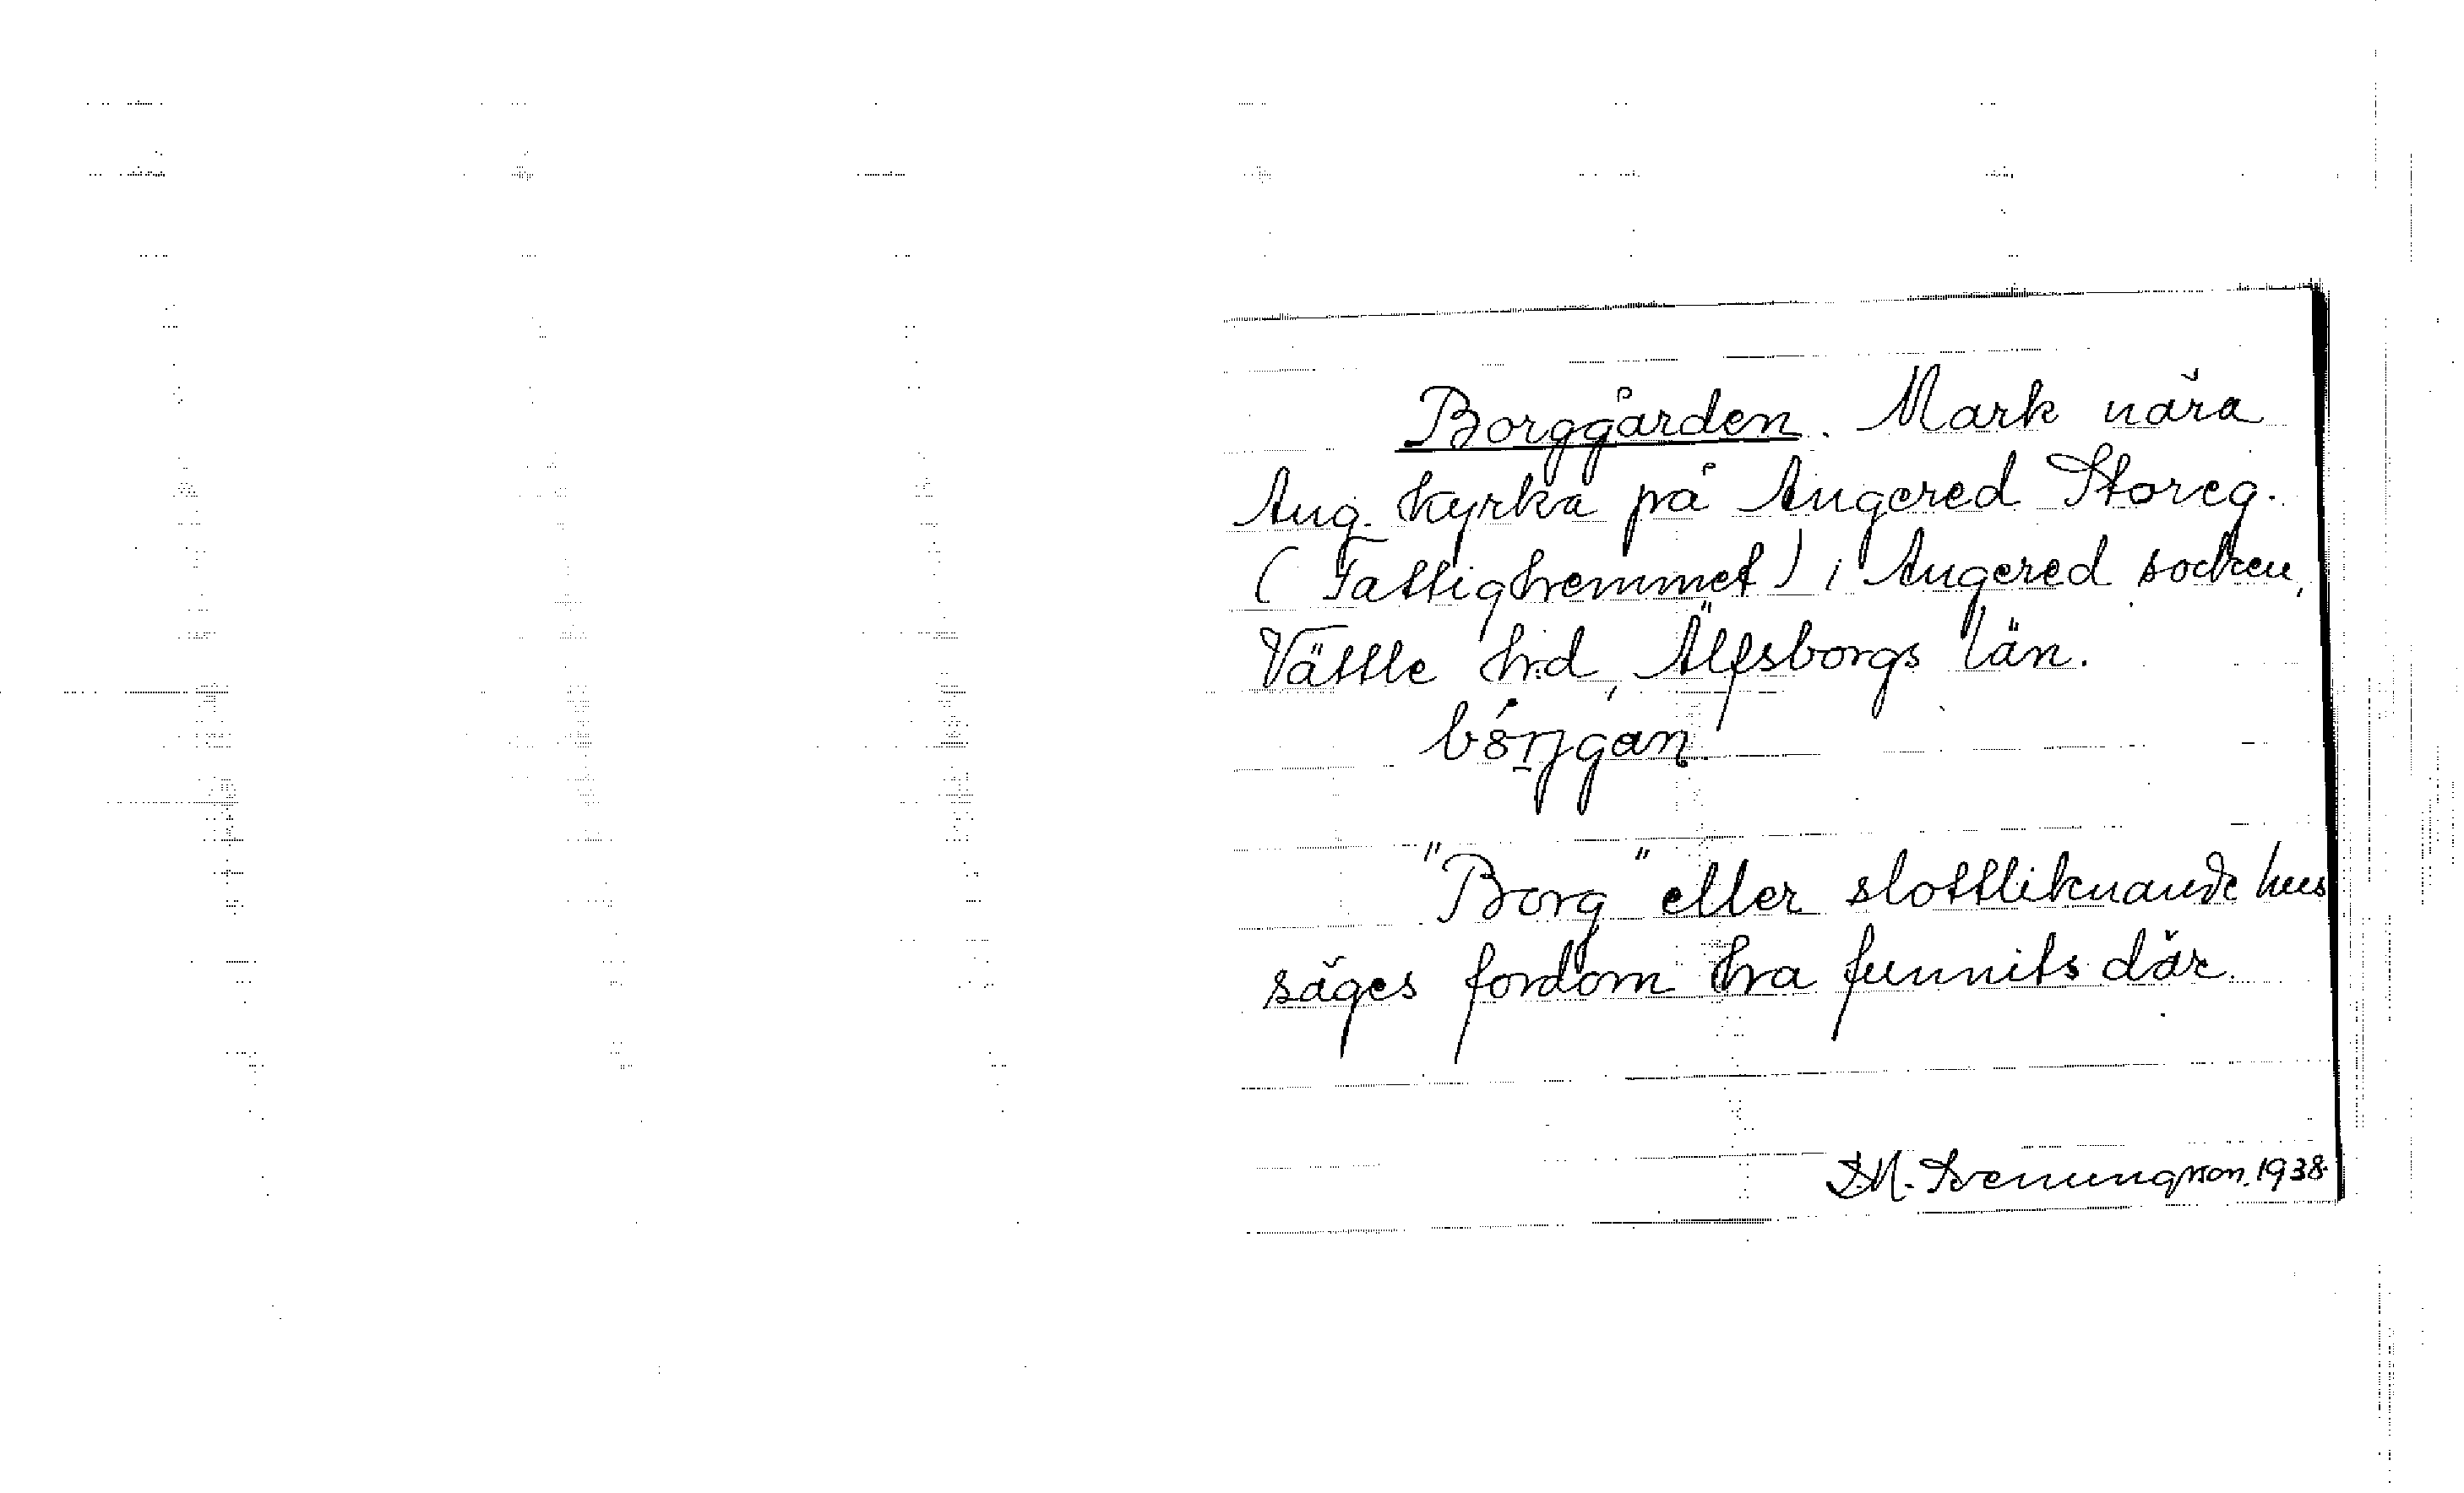 Borggården. Mark nära
Ang. kyrka på Angered Storeg.
(Fattighemmet) i Angered socken,
Vättle hd, Älfsborgs län.
"Borg" eller slottliknande hus
säges fordom ha funnits där.
D.M. Svenungsson. 1938